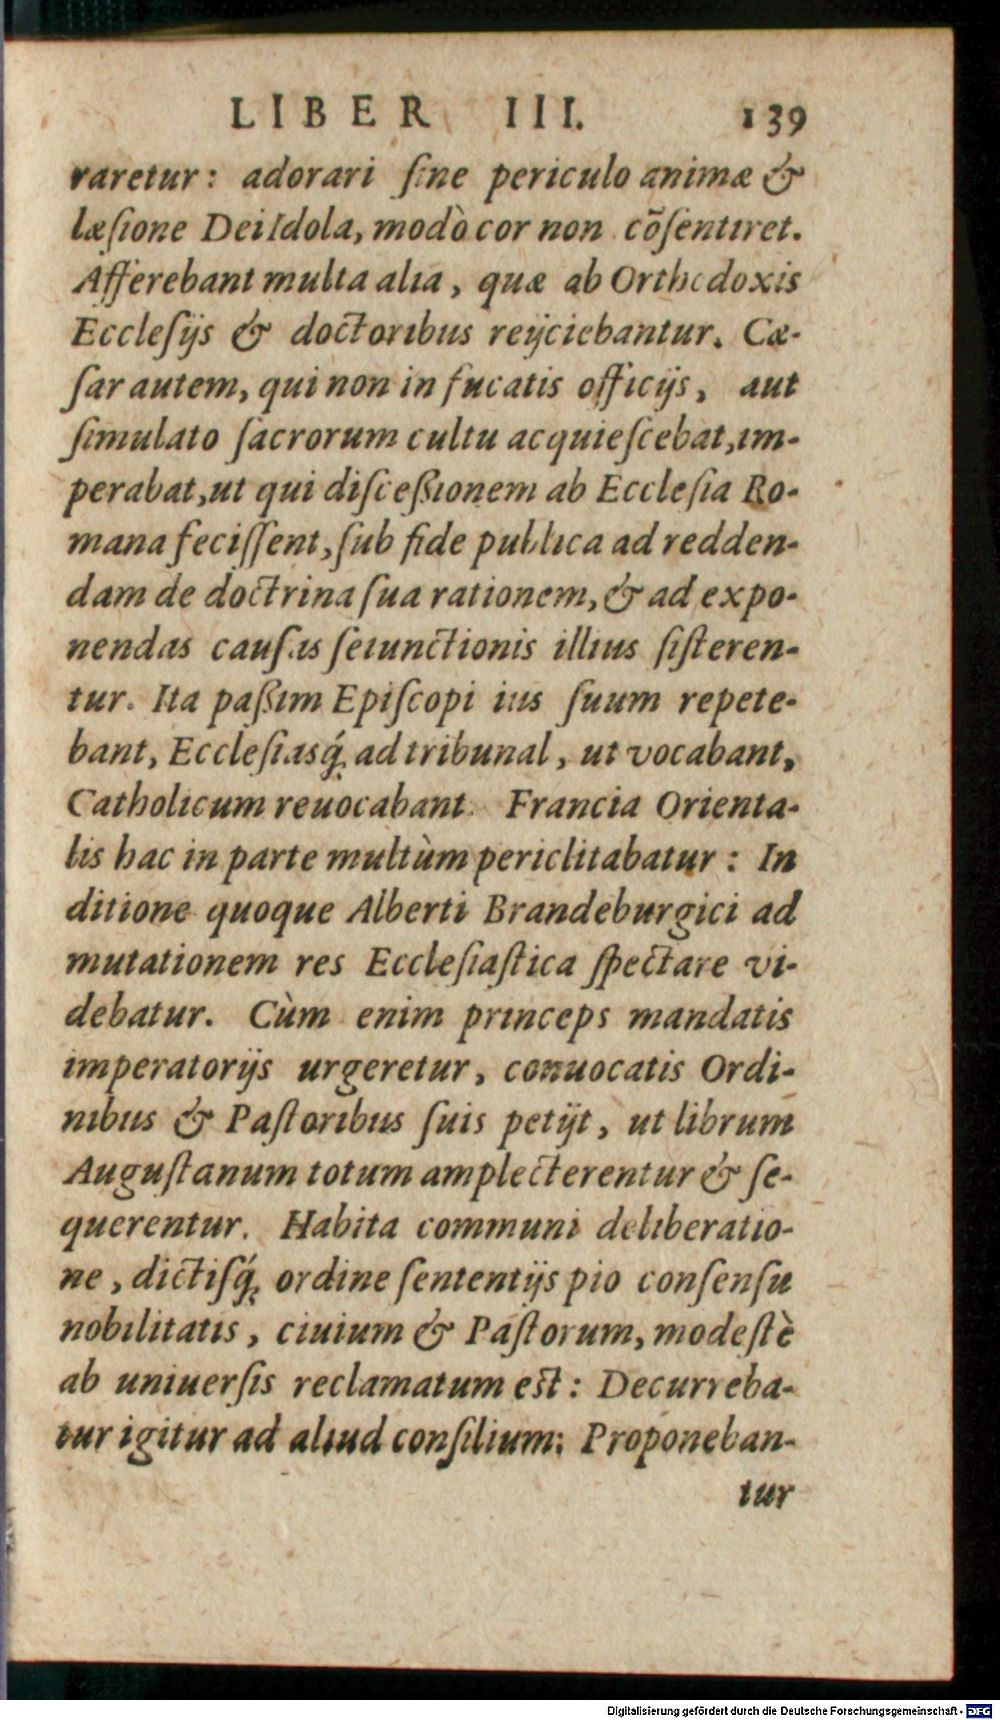 LIBER III. 139
raretur: adorari ſine periculo animæ &
læſione Dei Idola, modò cor non cõſentiret.
Afferebant multa alia, quæ ab Orthodoxis
Eccleſijs & doctoribus reijciebantur. Cæ-
ſar autem, qui non in fucatis officijs, aut
ſimulato ſacrorum cultu acquieſcebat, im-
perabat, ut qui diſceßionem ab Eccleſia Ro-
mana feciſſent, ſub fide publica ad redden-
dam de doctrina ſua rationem, & ad expo-
nendas cauſas ſeiunctionis illius ſiſteren-
tur. Ita paßim Epiſcopi ius ſuum repete-
bant, Eccleſiasq́; ad tribunal, ut vocabant,
Catholicum reuocabant. Francia Orienta-
lis hac in parte multùm periclitabatur: In
ditione quoque Alberti Brandeburgici ad
mutationem res Eccleſiaſtica ſpectare vi-
debatur. Cùm enim princeps mandatis
imperatorijs urgeretur, conuocatis Ordi-
nibus & Paſtoribus ſuis petijt, ut librum
Auguſtanum totum amplecterentur & ſe-
querentur. Habita communi deliberatio-
ne, dictiſq́; ordine ſententijs pio conſenſu
nobilitatis, ciuium & Paſtorum, modeſtè
ab uniuerſis reclamatum est: Decurreba-
tur igitur ad aliud conſilium: Proponeban-
tur
Digitalisierung gefördert durch die Deutsche Forschungsgemeinschaft - DFG